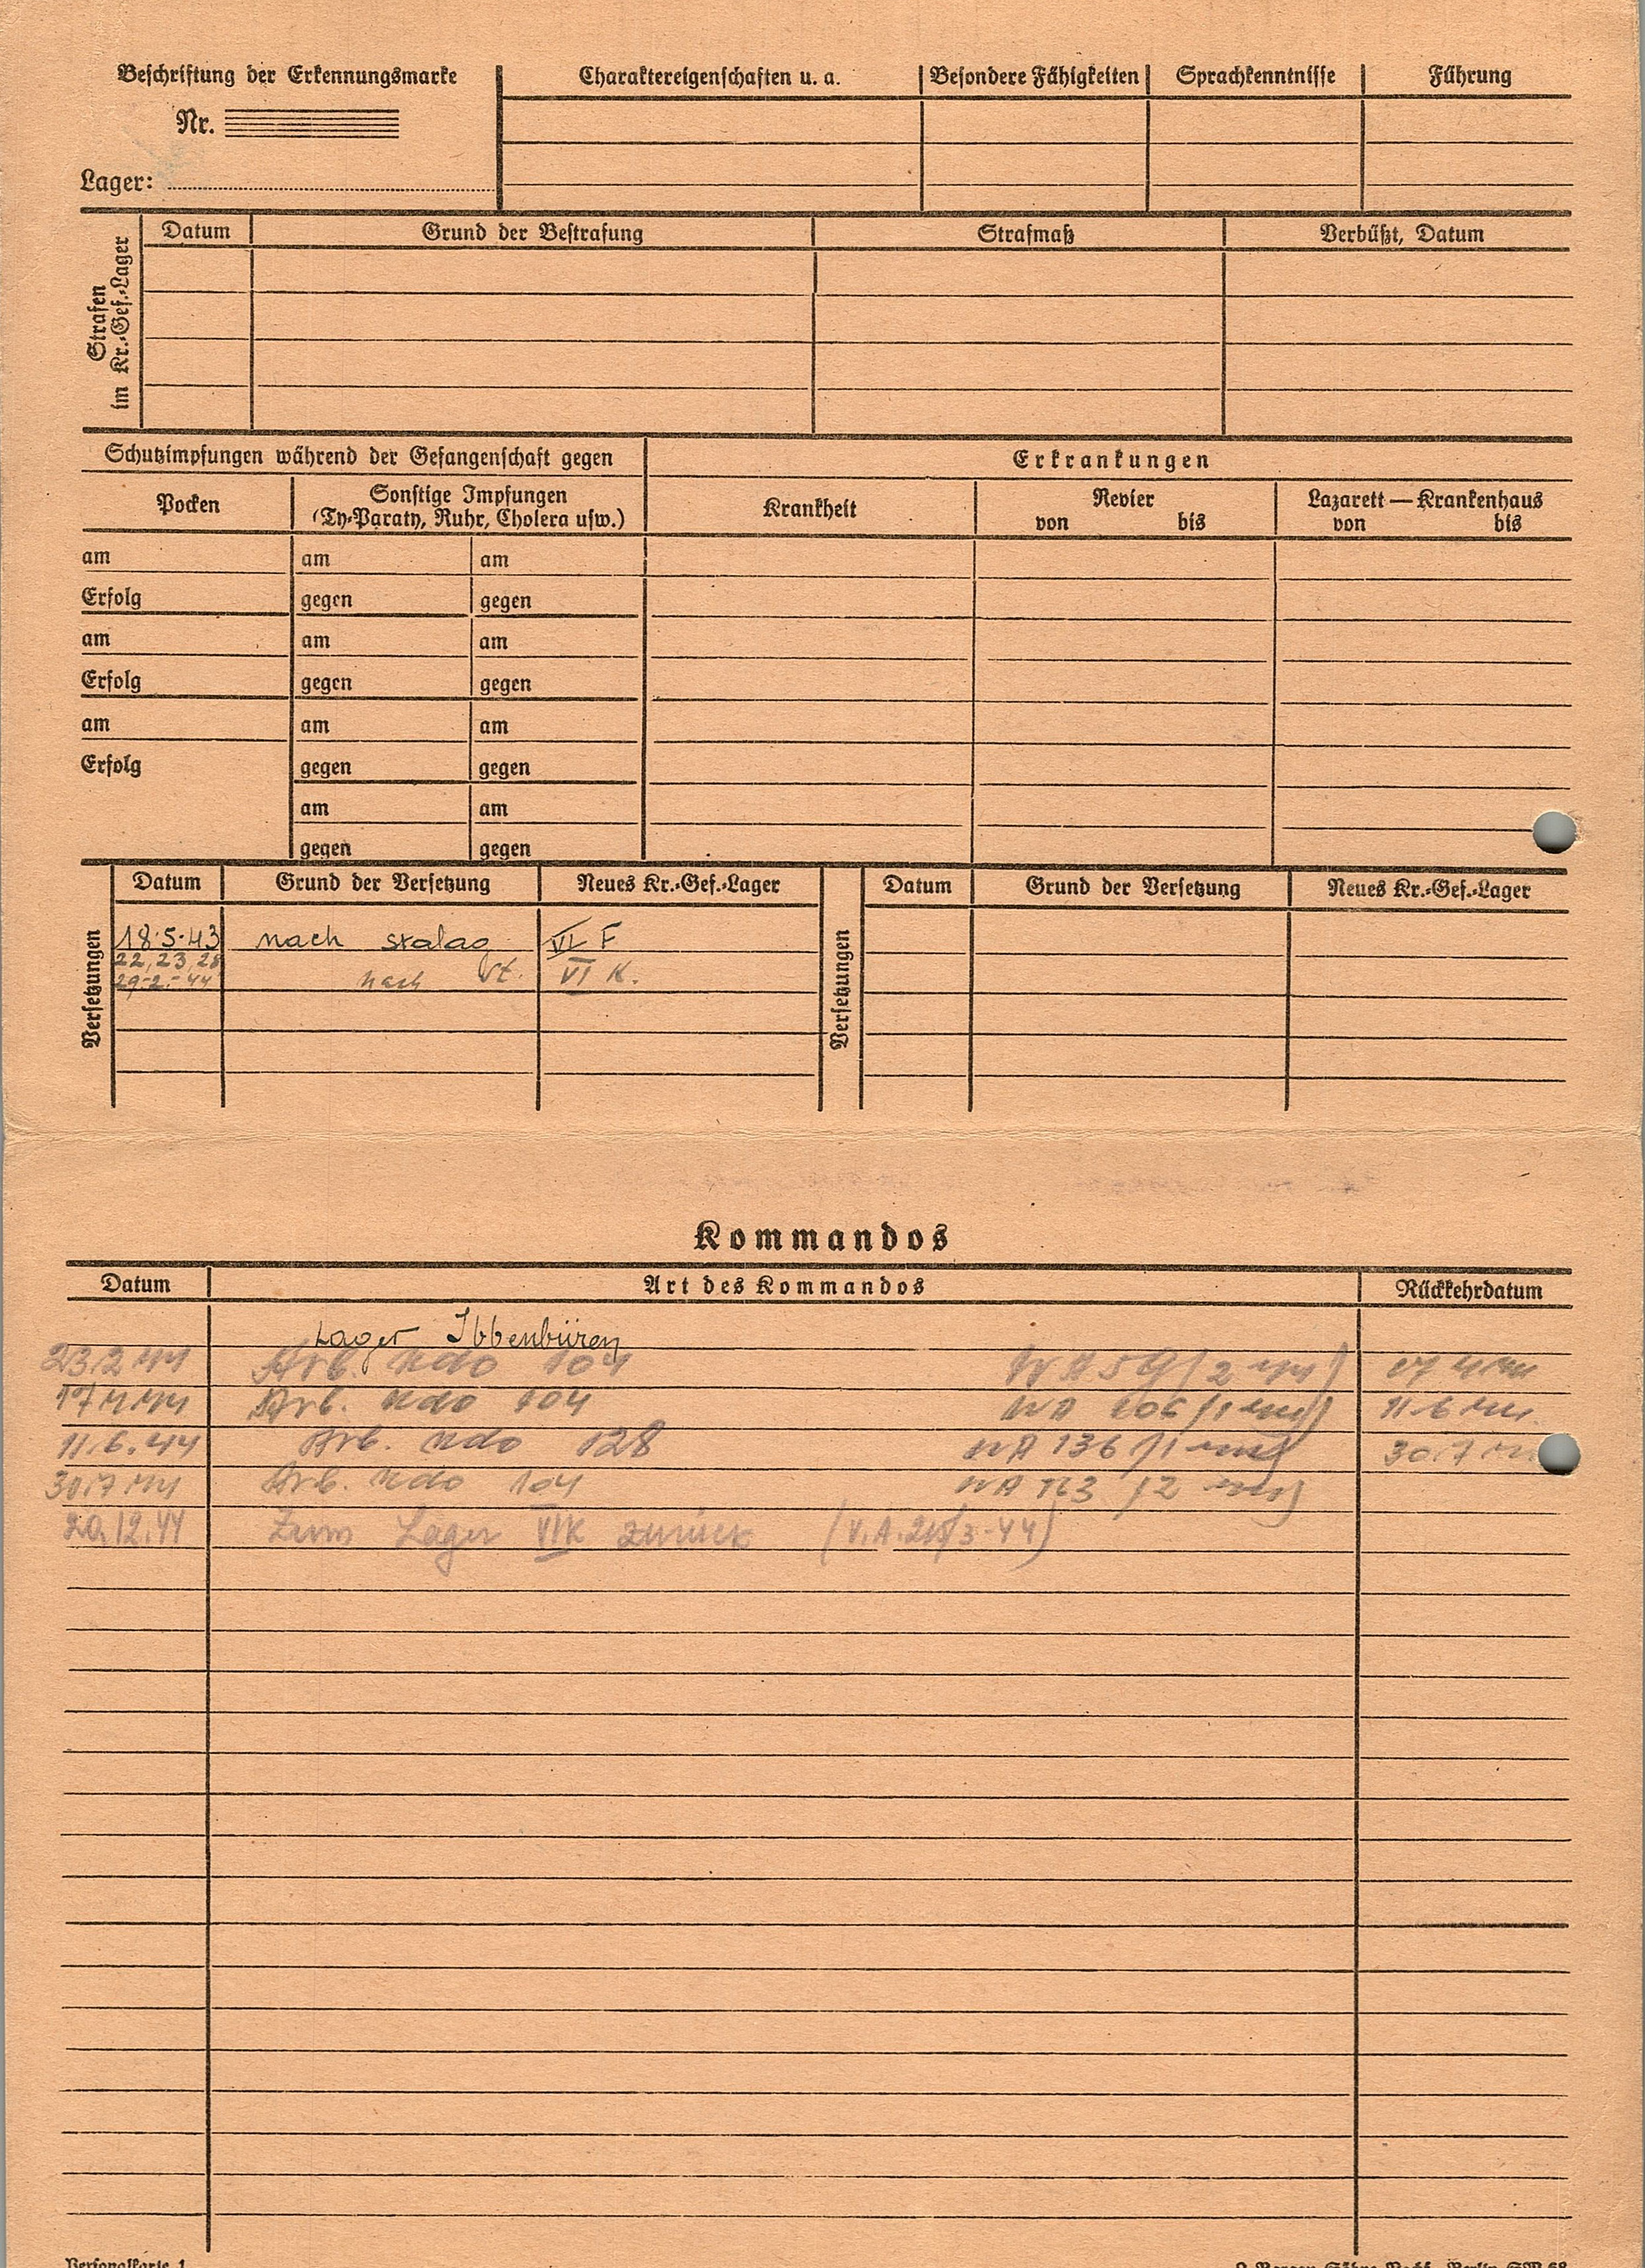 Beschriftung der Erkennungsmarke
Nr.
Lager:
Charaktereigenschaften u. a.
Besondere Fähigkeiten
Sprachkenntnisse
Führung
Strafen
im Kr.-Gef.-Lager
Datum
Grund der Bestrafung
Strafmaß
Verbüßt, Datum
Schutzimpfungen während der Gefangenschaft gegen
Erkrankungen
Pocken
Sonstige Impfungen
(Ty-Paraty, Ruhr, Cholera usw.)
Krankheit
Revier
von bis
Lazarett — Krankenhaus
von bis
am am am
Erfolg gegen gegen
am am am
Erfolg gegen gegen
am am am
Erfolg gegen gegen
am am
gegen gegen
Versetzungen
Datum Grund der Versetzung Neues Kr.-Gef.-Lager
18.5.43 nach stalag VI F
22, 23, 28
29-2.-44 nach St. VI K.
Versetzungen
Datum Grund der Versetzung Neues Kr.-Gef.-Lager
Kommandos
Datum Art des Kommandos Rückkehrdatum
Lager Ibbenbüren
23.2 44 Arb. Kdo 104 WA 59 (2 44) 17 4 44
17 4 44 Arb. Kdo 104 WA 106 (1 44) 11 6 44.
11.6.44 Arb. Kdo 128 WA 136 (1 44) 30.7
30.7 44 Arb. Kdo 104 WA 163 (2 44)
20.12.44 Zum Lager VIK zurück (V.A. /3-44)
Personalkarte 1